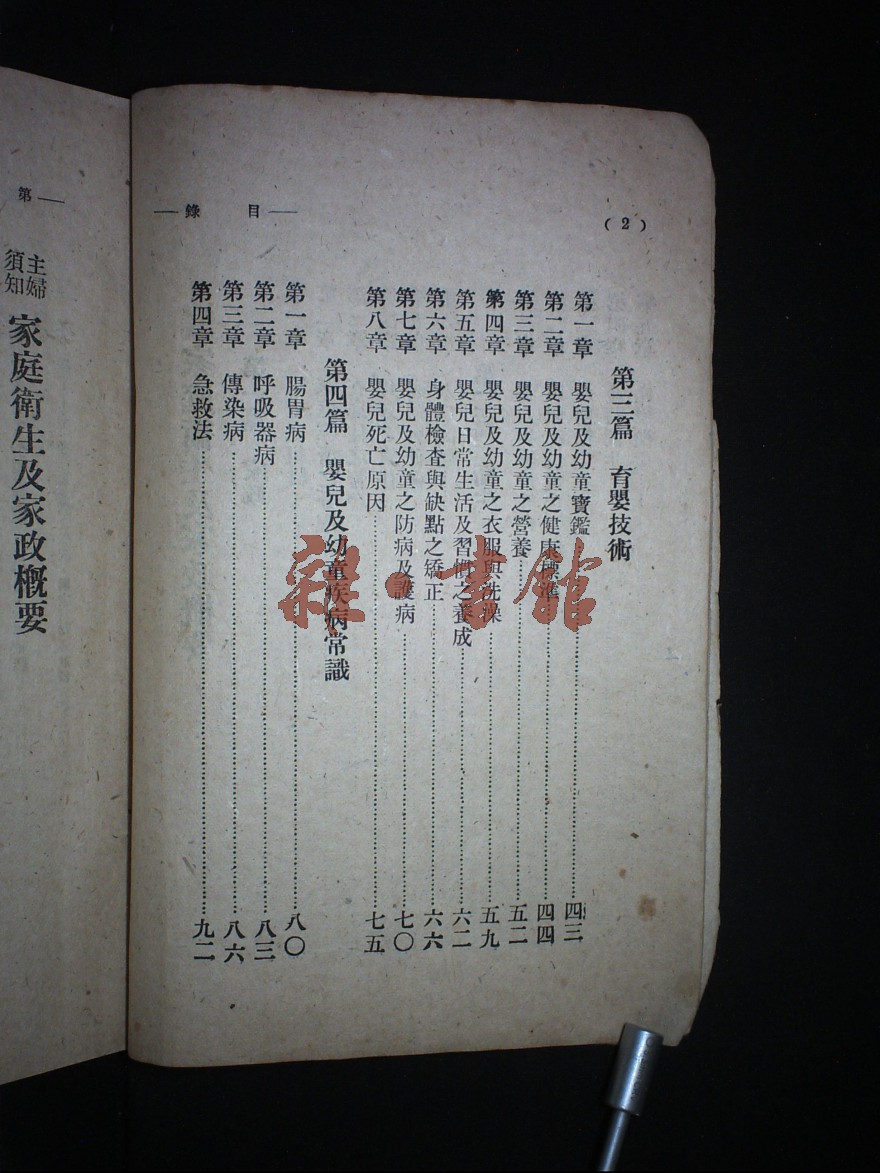 (2)
— 目 錄 —
第三篇 育嬰技術
第一章 嬰兒及幼童寶鑑……四三
第二章 嬰兒及幼童之健康標準……四四
第三章 嬰兒及幼童之營養……五二
第四章 嬰兒及幼童之衣服與洗澡……五九
第五章 嬰兒日常生活及習慣之養成……六二
第六章 身體檢查與缺點之矯正……六六
第七章 嬰兒及幼童之防病及護病……七〇
第八章 嬰兒死亡原因……七五
第四篇 嬰兒及幼童疾病常識
第一章 腸胃病……八〇
第二章 呼吸器病……八三
第三章 傳染病……八六
第四章 急救法……九二
雜·書館
第 —
主婦須知 家庭衛生及家政概要